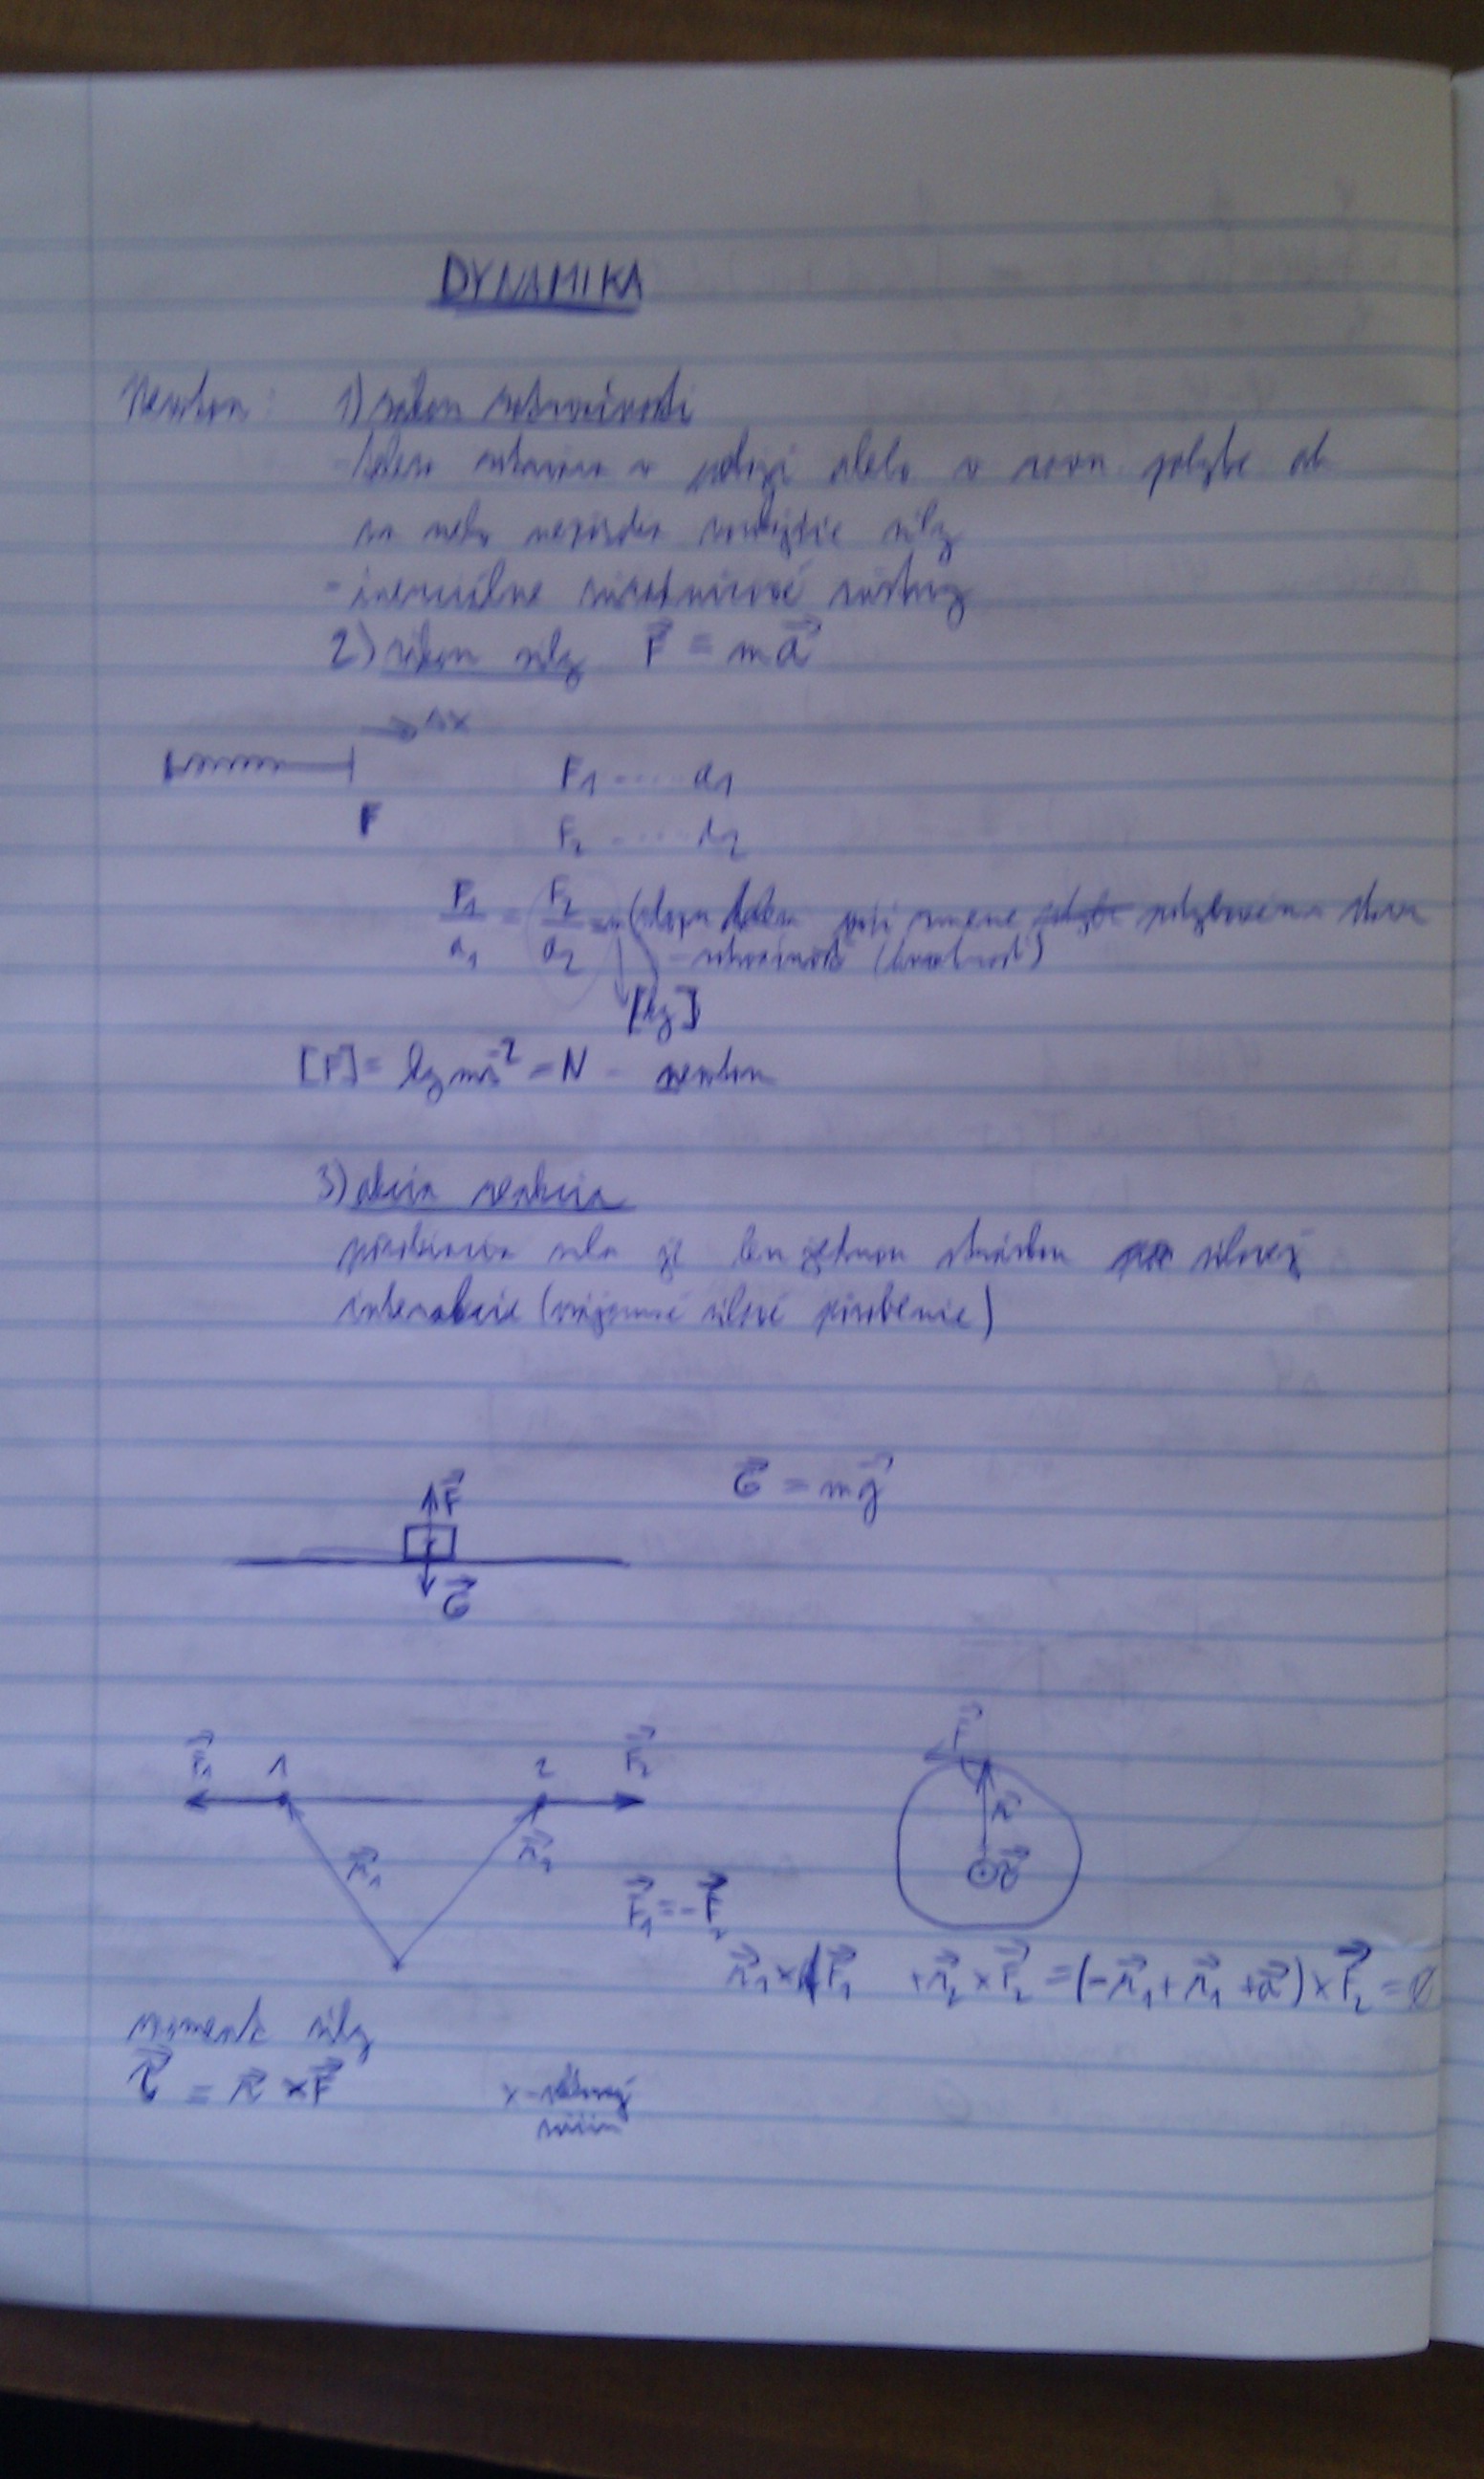 DYNAMIKA
Newton: 1) zákon zotrvačnosti
- teleso zotrváva v pokoji alebo v rovn. pohybe ak
na neho nepôsobia vonkajšie sily
- inerciálne súradnicové sústavy
2) zákon sily F⃗ = ma⃗
Δx
F
F₁ ..... a₁
F₂ ..... a₂
F₁/a₁ = F₂/a₂ = (odpor telesa voči zmene pohybového stavu
- zotrvačnosť (hmotnosť)
[kg]
[F] = kg ms⁻² = N - newton
3) akcia reakcia
pôsobiaca sila je len jednou stránkou silovej
interakcie (vzájomné silové pôsobenie)
F⃗
G⃗ = mg⃗
G⃗
F⃗₁ 1 2 F⃗₂
F⃗
r⃗
r⃗₁ r⃗₁
τ⃗
F⃗₁ = -F⃗₂
r⃗₁ × F⃗₁ + r⃗₂ × F⃗₂ = (-r⃗₁ + r⃗₁ + a⃗) × F⃗₂ = 0
moment sily
τ⃗ = r⃗ × F⃗
× - vektorový
súčin